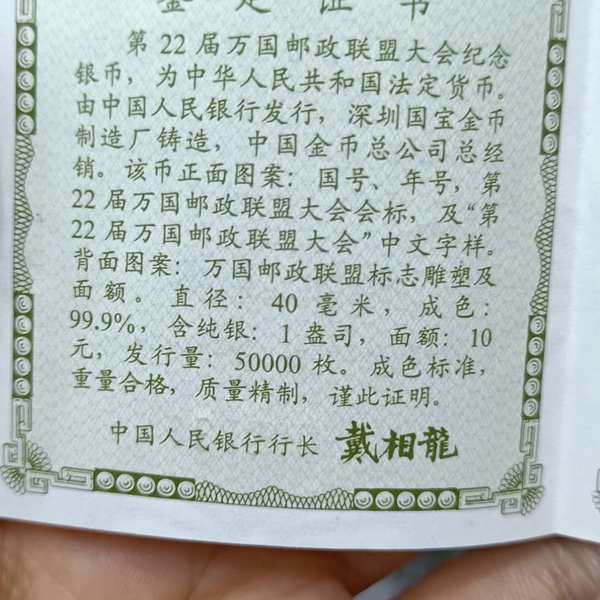 鉴定证书
第22届万国邮政联盟大会纪念
银币，为中华人民共和国法定货币。
由中国人民银行发行，深圳国宝金币
制造厂铸造，中国金币总公司总经
销。该币正面图案：国号、年号，第
22届万国邮政联盟大会会标，及“第
22届万国邮政联盟大会”中文字样。
背面图案：万国邮政联盟标志雕塑及
面额。直径：40毫米，成色：
99.9%，含纯银：1盎司，面额：10
元，发行量：50000枚。成色标准，
重量合格，质量精制，谨此证明。
中国人民银行行长 戴相龍